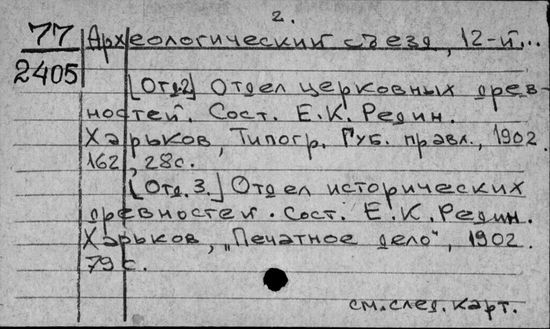 2.
77
2405
Археологический съезд, 12-й,..
[Отд.2] Отдел церковных древ-
ностей. Сост. Е.К. Редин.
Харьков, Типогр. Губ. правл., 1902.
162, 28с.
[Отд. 3.] Отдел исторических
древностей. Сост. Е.К. Редин.
Харьков, „Печатное дело", 1902.
79 с.
см. след. карт.